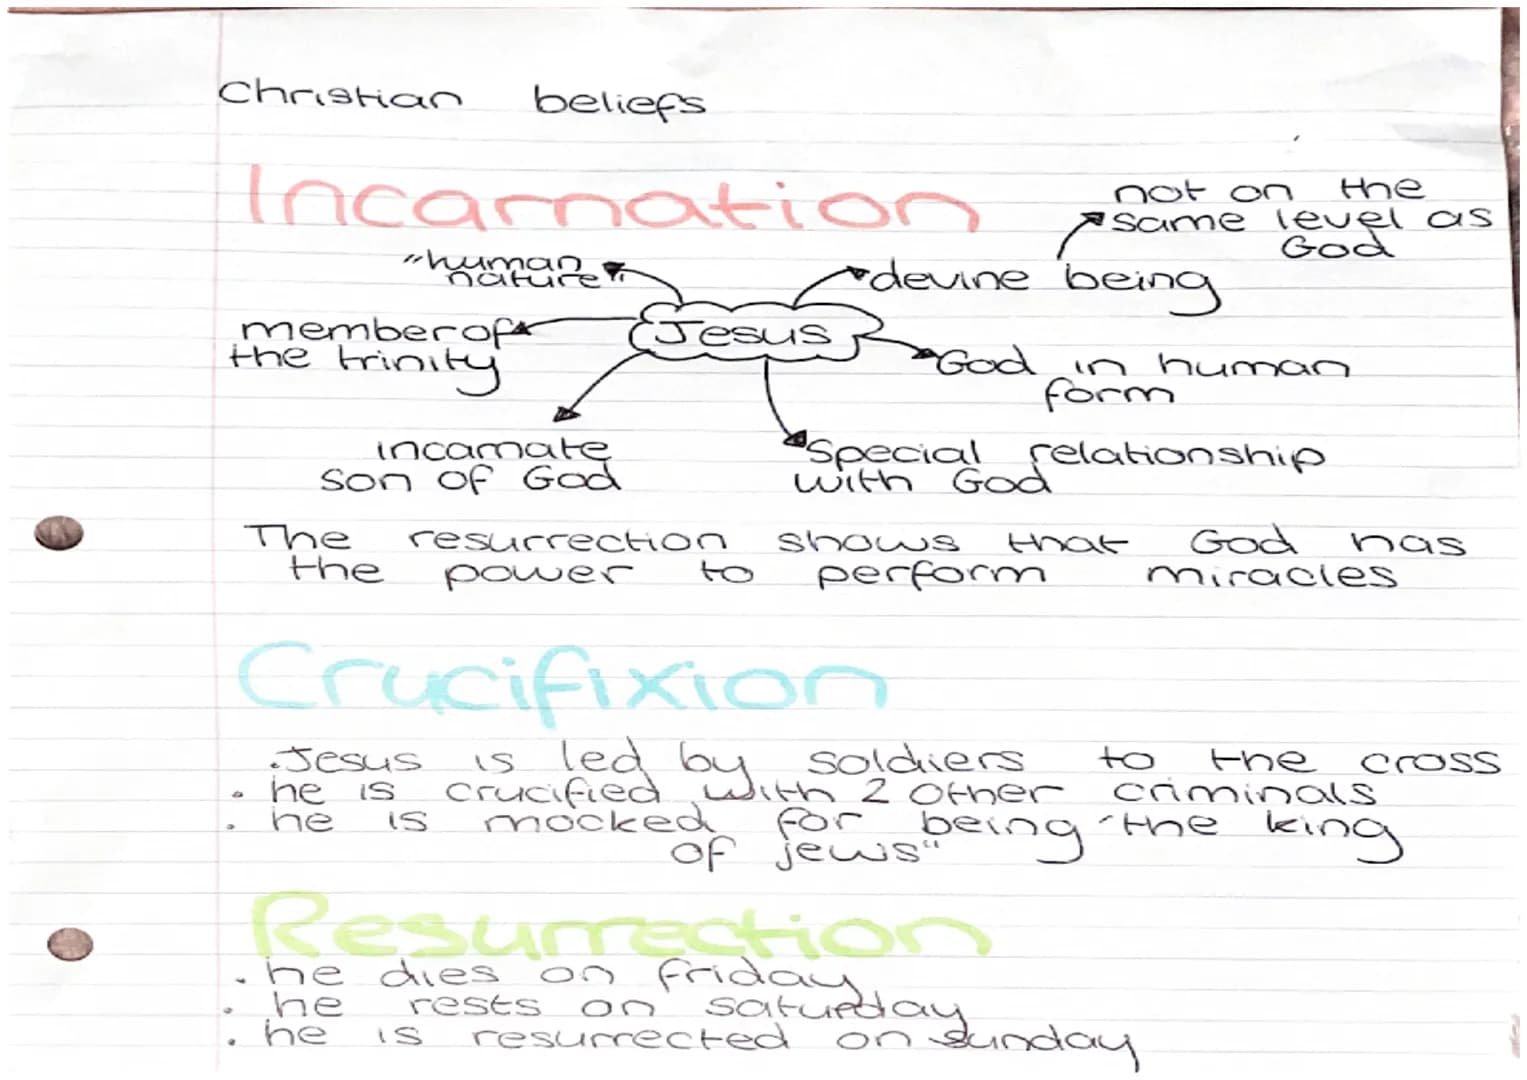 Christian beliefs
Incarnation
not on the
same level as
God
"human
nature"
devine being
Jesus
member of
the trinity
God in human
form
incarnate
son of God
Special relationship
with God
The resurrection shows that God has
the power to perform miracles
Crucifixion
.Jesus is led by soldiers to the cross
• he is crucified with 2 other criminals
• he is mocked for being "the king
of jews"
Resurrection
• he dies on friday
• he rests on saturday
• he is resurrected on sunday